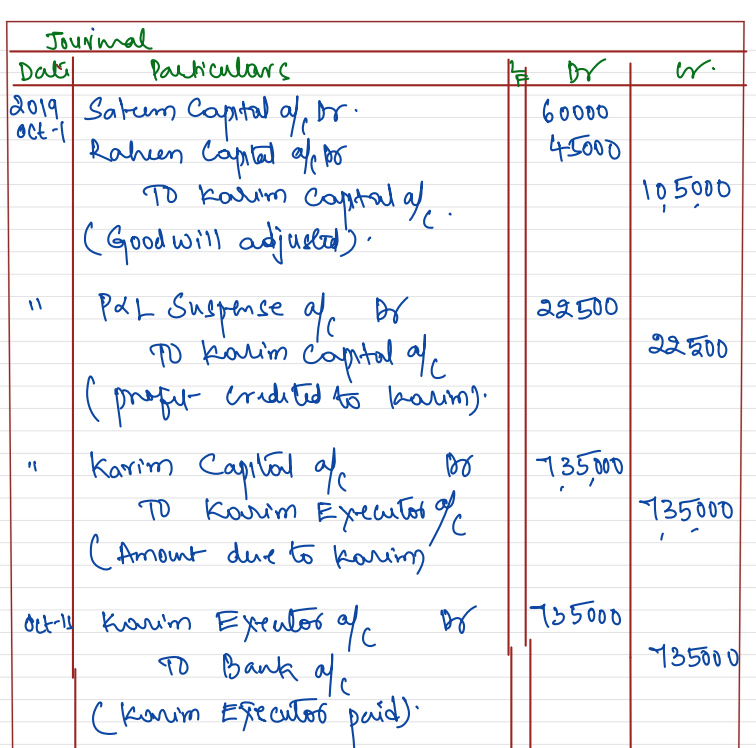 Journal
Date Particulars LF Dr Cr.
2019 Saleem Capital a/c Dr. 60000
Oct-1 Raheem Capital a/c Dr 45000
TO Karim Capital a/c. 105000
(Goodwill adjusted).
" P&L Suspense a/c Dr 22500
TO Karim Capital a/c 22500
(profit credited to Karim).
" Karim Capital a/c Dr 735000
TO Karim Executor a/c 735000
(Amount due to Karim)
Oct-15 Karim Executor a/c Dr 735000
TO Bank a/c 735000
(Karim Executor paid).